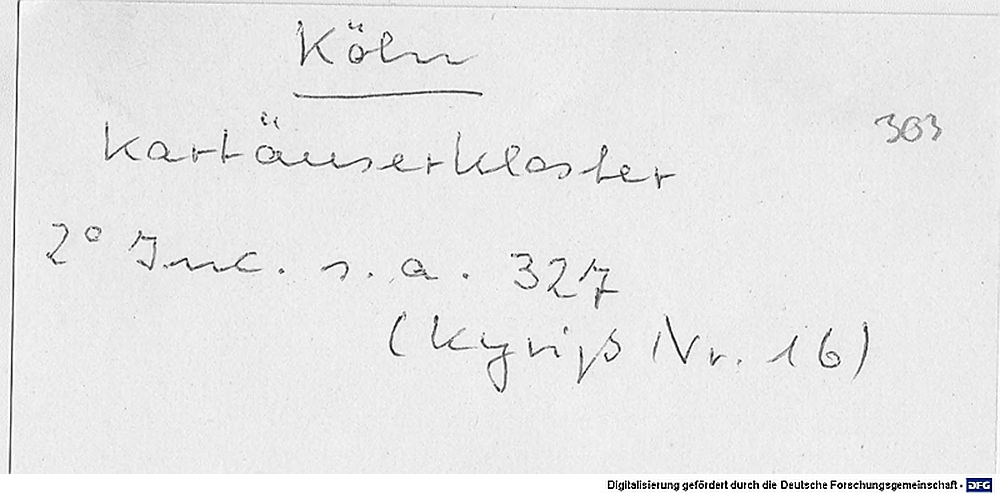 Köln
303
Kartäuserkloster
2° Inc. s. a. 327
(Kyriß Nr. 16)
Digitalisierung gefördert durch die Deutsche Forschungsgemeinschaft - DFG